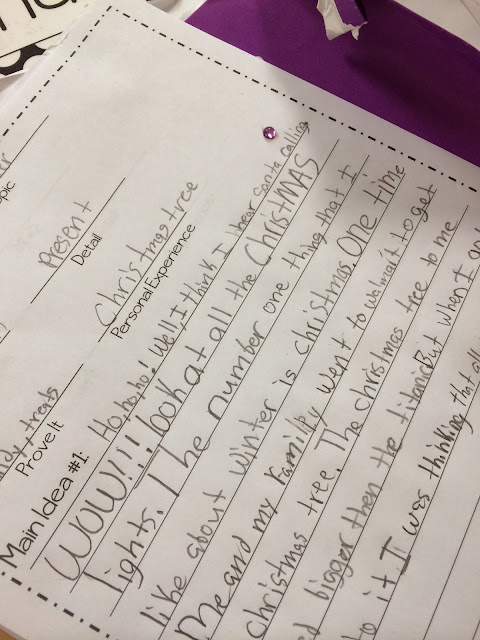 Present
Detail
Christmas tree
Personal Experience
treats
Prove It
Main Idea #1: Ho, ho, ho! Well, I think I hear Santa calling
WOW!!! look at all the ChristMAS
lights. The number one thing that I
like about winter is christmas. One time
Me and my Familly went to walmart to get
christmas tree. The christmas tree to me
bigger then the titanic. But when I
to it. I was thinking that